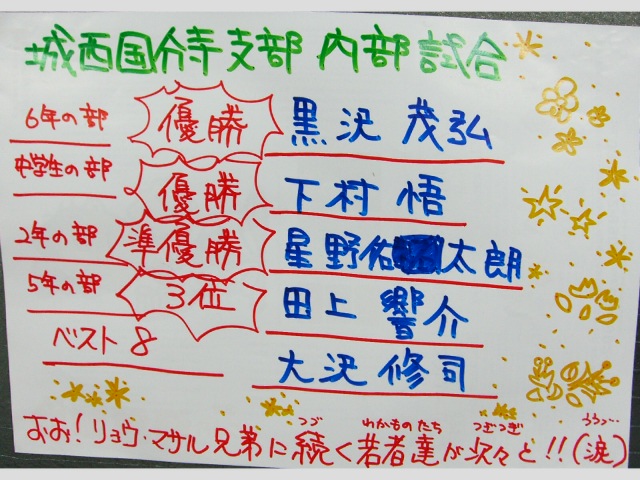 城西国分寺支部 内部試合
6年の部 優勝 黒沢 茂弘
中学生の部 優勝 下村 悟
2年の部 準優勝 星野佑太朗
5年の部 3位 田上 響介
ベスト8 大沢 修司
つづ わかものたち つぎつぎ うるっ…
おお!リョウ・マサル兄弟に続く若者達が次々と!!(涙)